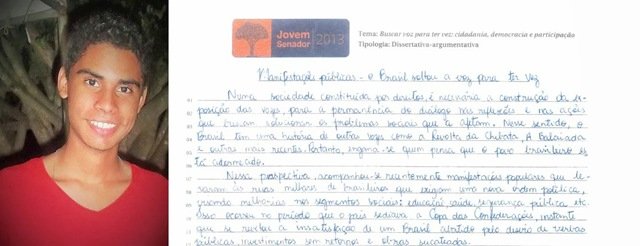 Jovem
Senador 2013
Tema: Buscar voz para ter vez: cidadania, democracia e participação
Tipologia: Dissertativa-argumentativa
Manifestações públicas - o Brasil soltou a voz para ter vez
Numa sociedade constituída por direitos, é necessária a construção da ex-
posição das vozes, para a permanência do diálogo nas reflexões e nas ações
que buscam solucionar os problemas sociais que a afetam. Nesse sentido, o
Brasil tem uma história de outras vozes como a Revolta da Chibata, A Balaiada
e outras mais recentes. Portanto, engana-se quem pensa que o povo brasileiro es-
tá adormecido.
Nessa perspectiva, acompanhou-se recentemente manifestações populares que le-
varam às ruas milhares de brasileiros que exigem uma nova ordem política,
querendo melhorias nos segmentos sociais: educação, saúde, segurança pública etc.
Isso ocorreu no período que o país sediava a Copa das Confederações, instante
que se revelou a insatisfação de um Brasil abatido pelo desvio de verbas
públicas, investimentos sem retornos e obras sucateadas.